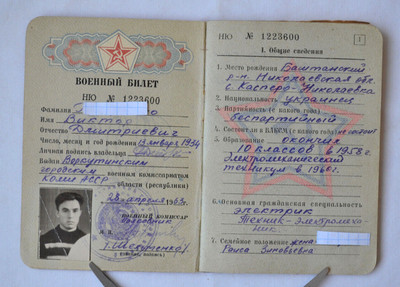 НЮ № 1223600
ВОЕННЫЙ БИЛЕТ
НЮ № 1223600
Фамилия
Имя Виктор
Отчество Дмитриевич
Число, месяц и год рождения января 1934
Личная подпись владельца
Выдан Воркутинским
городским военным комиссариатом
Коми АССР области (республики)
апреля 1963
Военный комиссар
подполковник
М. П.
1
I. Общие сведения
1. Место рождения Баштанский
р-н Николаевская обл.
с. Касперо-Николаевка
2. Национальность украинец
3. Партийность (с какого года)
беспартийный
4. Состоит ли в ВЛКСМ (с какого года) не состоит
5. Образование окончил
10 классов в 1953 г.
Электромеханический
техникум в 1960 г.
6. Основная гражданская специальность
электрик
Техник-электромеханик.
7. Семейное положение жена
Раиса Зиновьевна